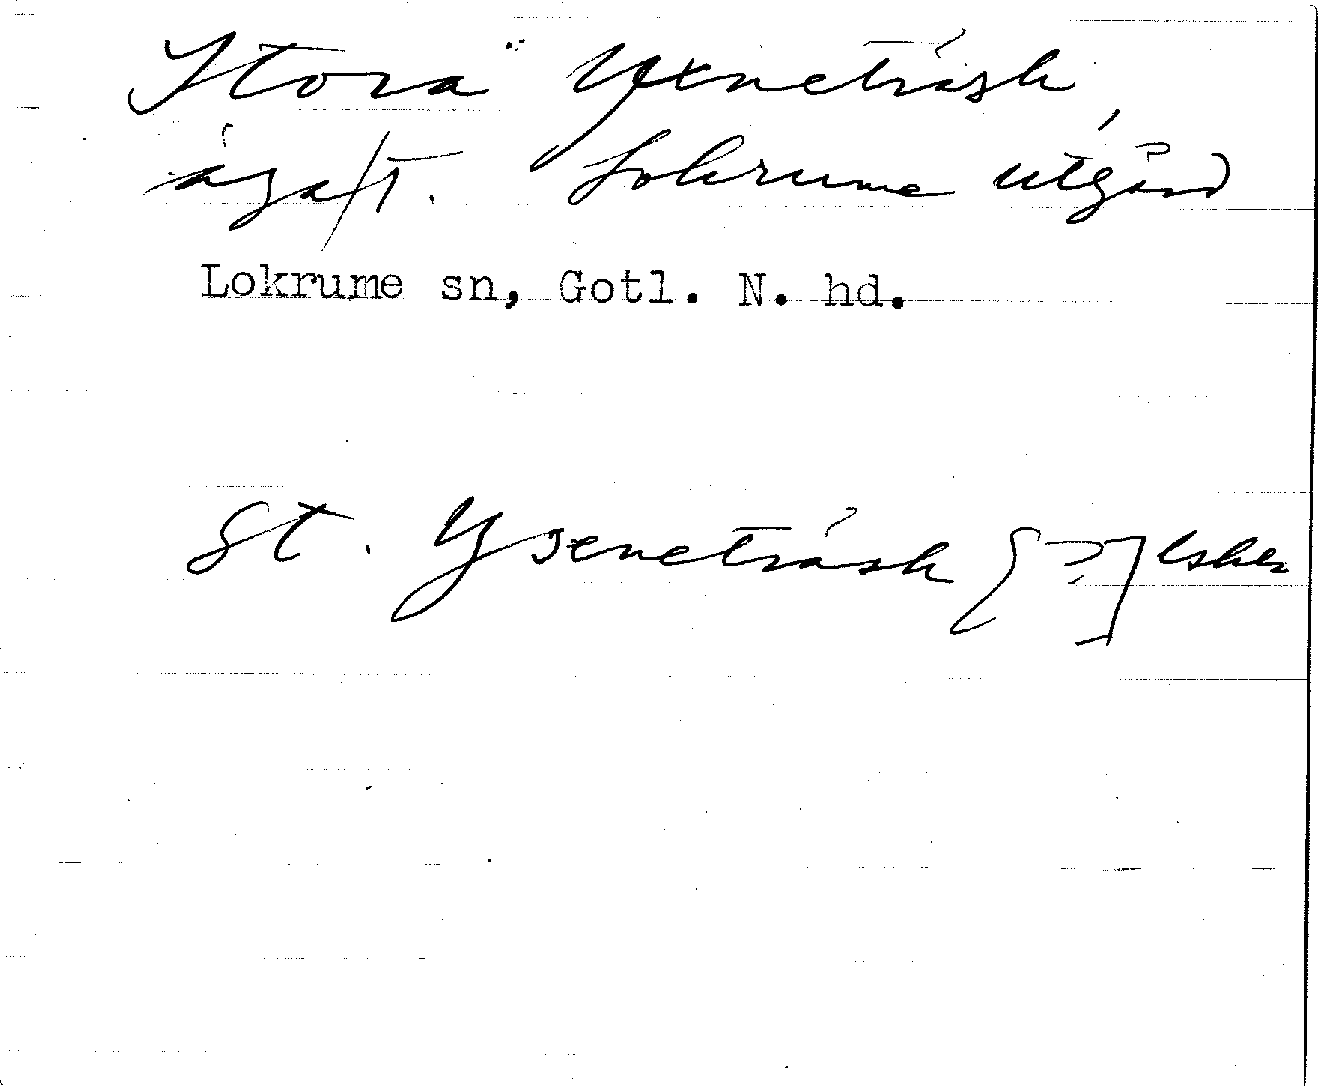 Stora Yxneträsk,
äga/t. Lokrume utgård
Lokrume sn, Gotl. N. hd.
St. Yxeneträsk [?]